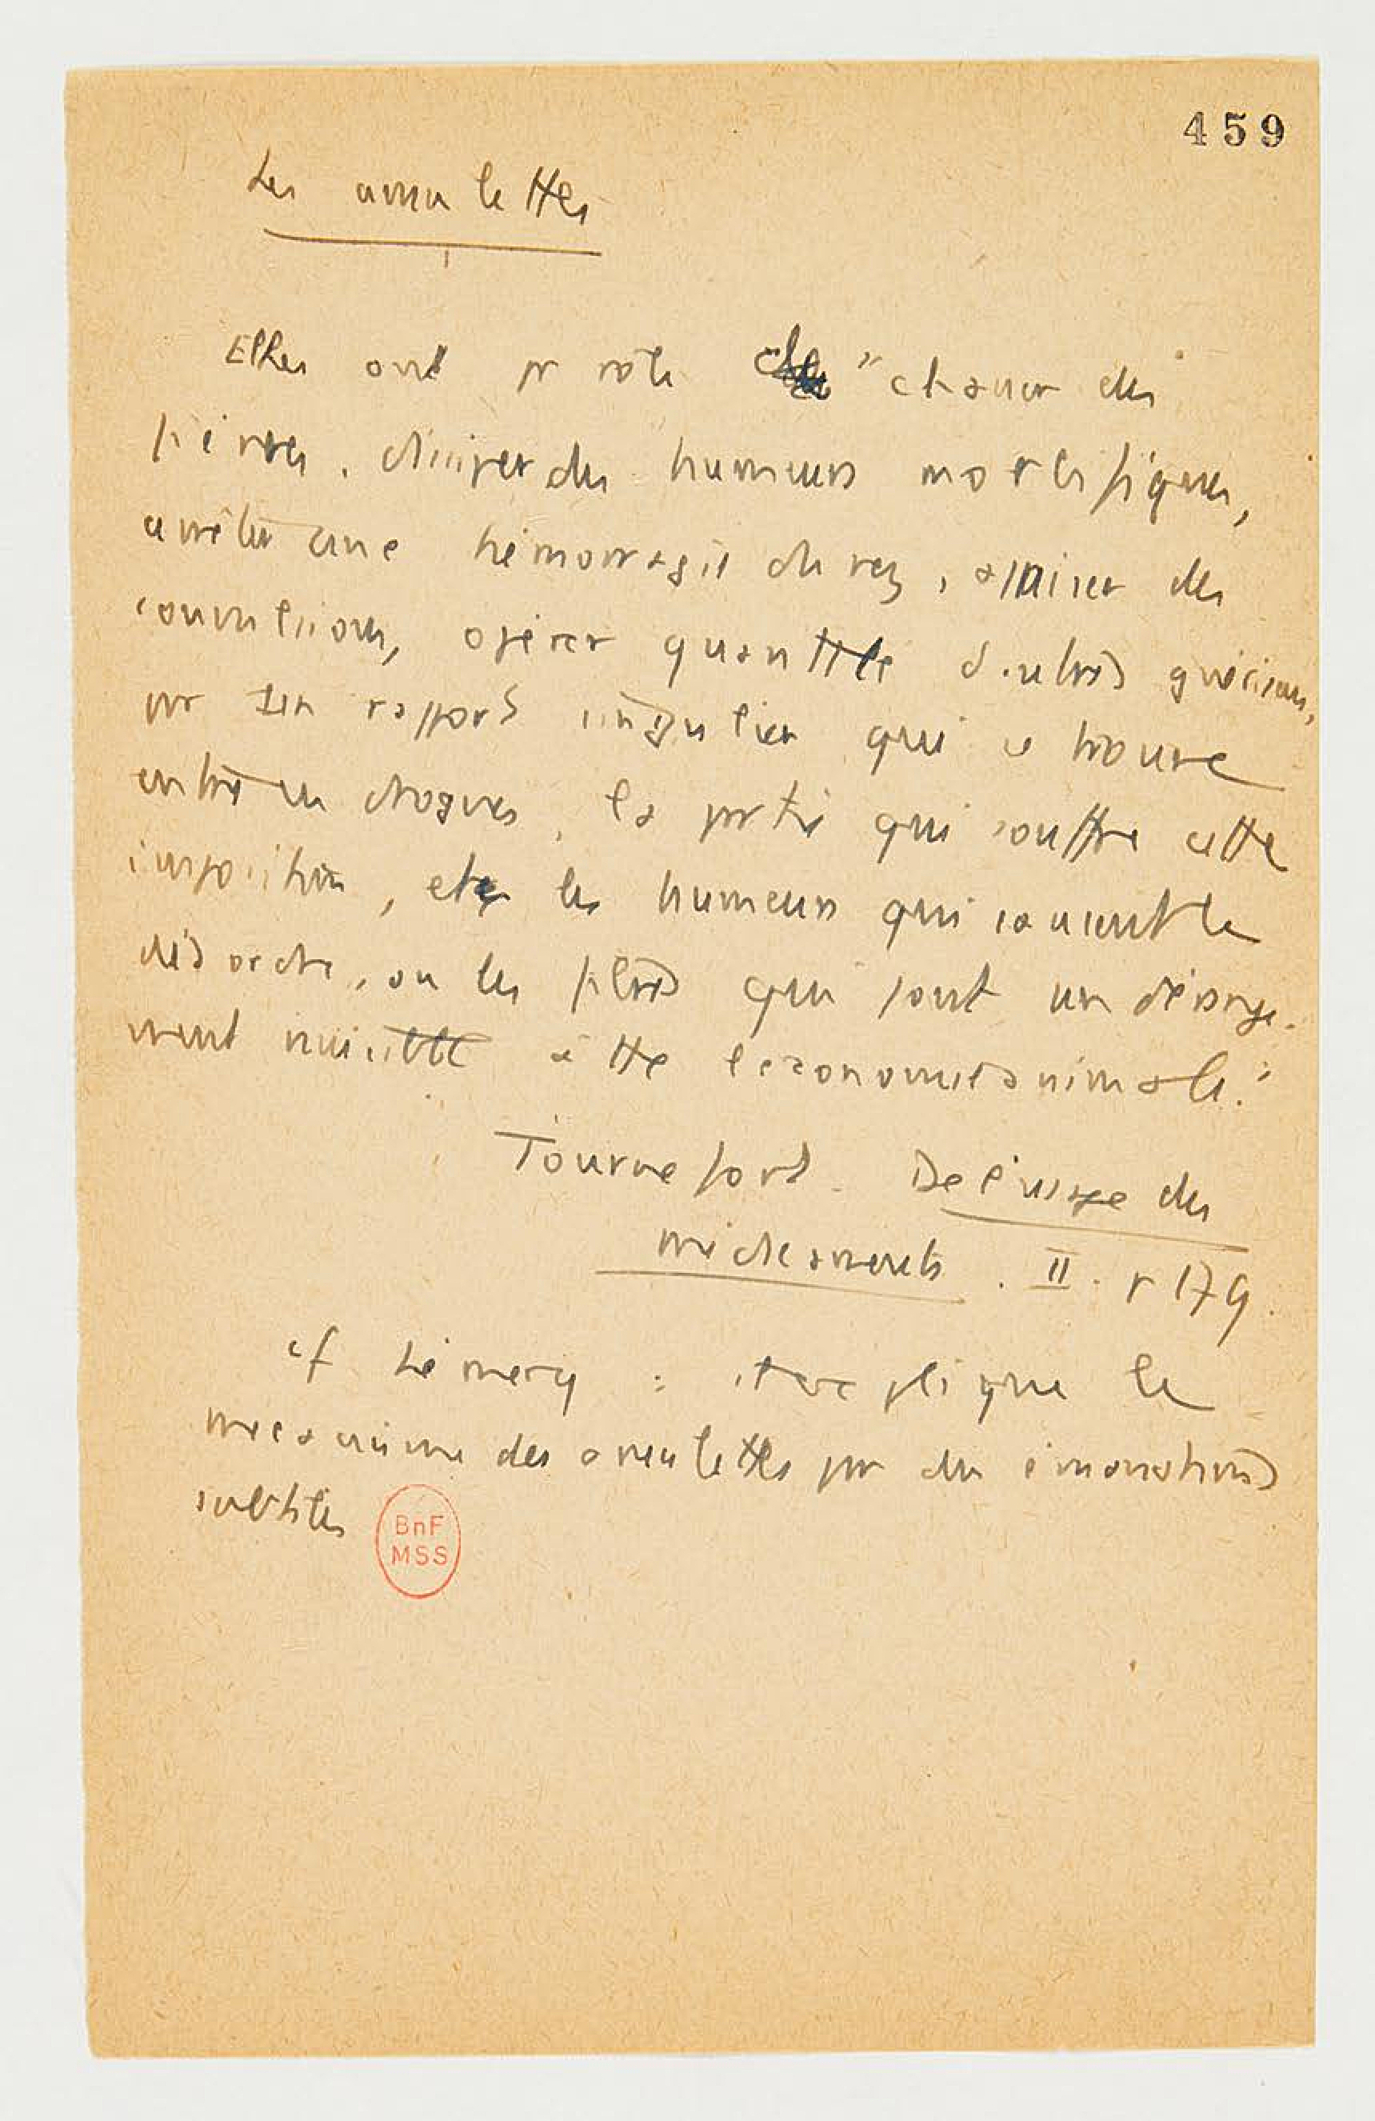 459
Les amulettes
Elles ont pr rôle de "chasser des
fièvres, dissiper des humeurs morbifiques,
arrêter une hémorragie du nez, apaiser des
convulsions, opérer quantité d'autres guérisons,
par un rapport singulier qui se trouve
entre ces drogues, la partie qui souffre cette
imposition, et les humeurs qui causent le
désordre, ou les filtres qui font un dérange-
ment nuisible à tte l'économie animale."
Tournefort. De l'usage des
médicaments. II. p 179.
cf Lémery : explique le
mécanisme des amulettes par des émanations
subtiles
BnF
MSS